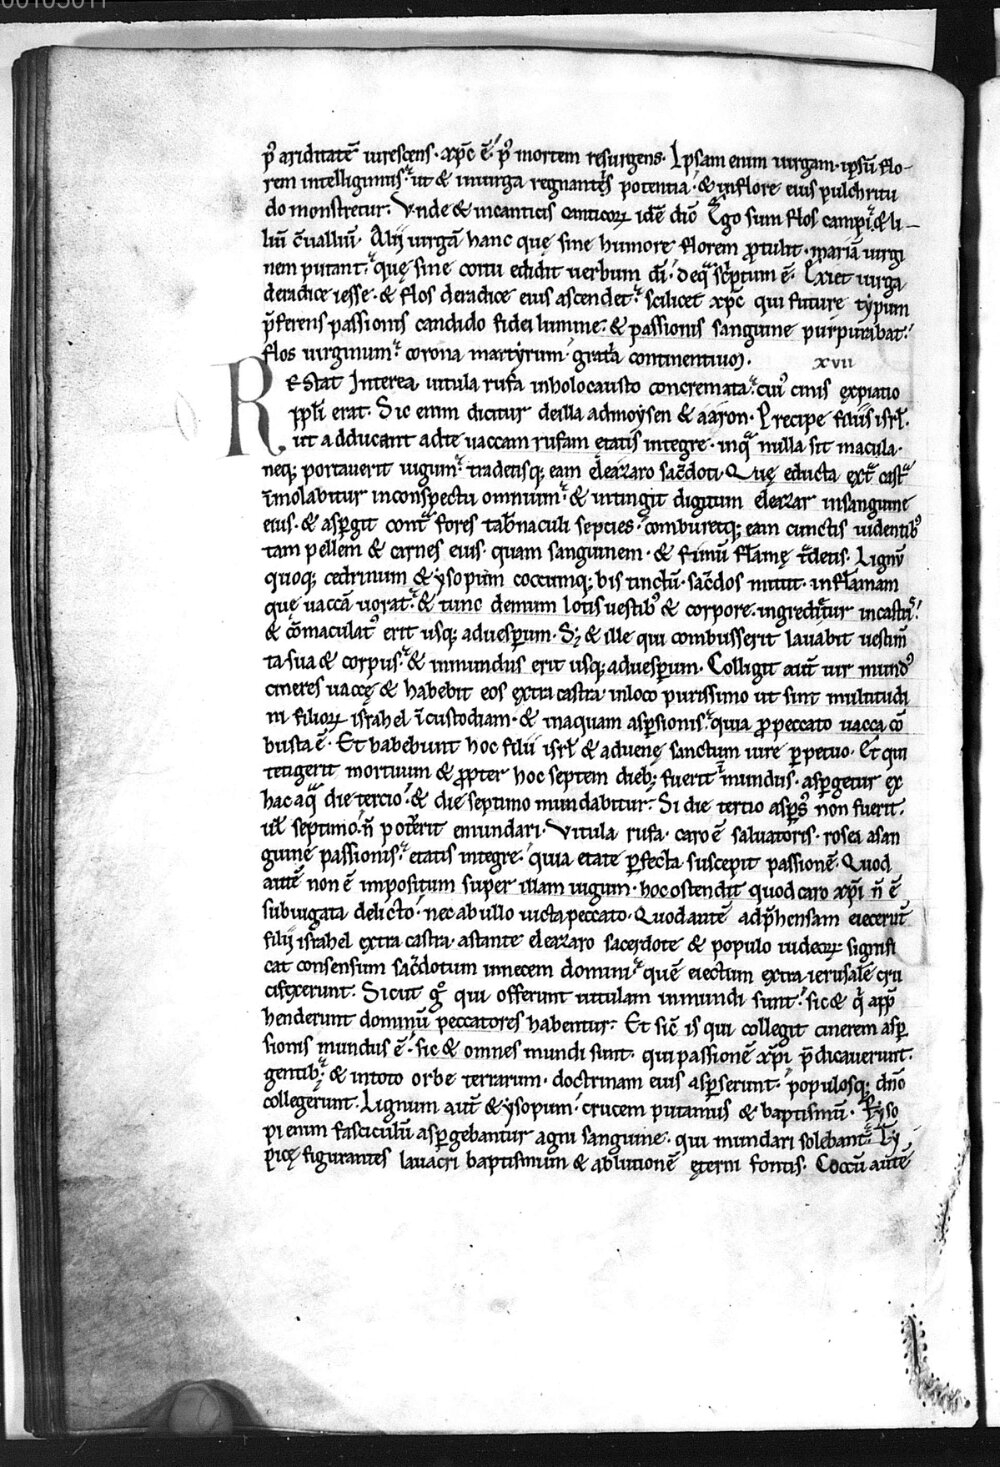 p᷒ ariditatē uirescens · xp̄c ē · p᷒ mortem resurgens · Ipsam enim uirgam · ipsū flo-
rem intelligimus · ut & inuirga regnantis potentia · & inflore eius pulchritu
do monstretur · Vnde & incanticis canticoꝝ idē dic̄ Ego sum flos campi · & li-
liū c̄ualliū · Alij uirgā hanc quę sine humore florem ꝓtulit · mariā uirgi
nem putant · quę sine coitu edidit uerbum dī · deq̄ sc̄ptum ē · Exiet uirga
deradice iesse · & flos deradice eius ascendet · scilicet xp̄c qui future typum
p̄ferens passionis candido fidei lumine · & passionis sanguine purpurabat ·
flos uirginum · corona martyrum · gratia continentium · xvii
REstat Interea uitula rufa inholocausto concremata · cui᷒ cinis expiatio
pp̄li erat · Sic enim dicitur deilla admoysen & aaron · Precipe filiis isrł ·
ut adducant adte uaccam rufam etatis integre · inq̄ nulla sit macula ·
neqꝫ portauerit uigum · tradetisqꝫ eam eleazaro sac̄doti · Quę educta ext̄ cast̄
īmolabitur inconspectu omnium · & intingit digitum eleazar insanguine
eius · & aspergit cont̄ fores tab̄naculi sepcies · comburetqꝫ eam cunctis uidentib᷒
tam pellem & carnes eius · quam sanguinem · & fimū flamę t̄dens · Lignū
quoqꝫ cedrinum & ysopum coccumqꝫ bis tinctū · sac̄dos mittit · inflamam
que uaccā uorat · & tunc demum lotis uestib᷒ & corpore · ingreditur incastra ·
& c̄omaculat᷒ erit usqꝫ aduesꝑum · Sꝫ & ille qui combusserit lauabit uestim̄
ta sua & corpus · & inmundus erit usqꝫ aduesꝑum · Colligit aut̄ uir mund᷒
cineres uaccę & habebit eos extra castra inloco purissimo ut sint multitudi
ni filioꝝ israhel ī custodiam · & inaquam asꝑsionis · quia ꝓpeccato uacca cō
busta ē · Et habebunt hoc filii isrł & aduenę sanctum iure ꝑpetuo · Et qui
tetigerit mortuum & ꝓpter hoc septem diebꝫ fuerit inmundus · aspgetur ex
hac aq̄ die tercio · & die septimo mundabitur · Si die tertio asꝑs᷒ non fuerit ·
uł septimo · n̄ poterit emundari · Vitula rufa · caro ē saluatoris · rosea asan
guine passionis · etatis integre · quia etate ꝑfecta suscepit passionē · Quod
autē non ē impositum super illam uigum · hoc ostendit quod caro xp̄i n̄ ē
subiugata delicto · nec ab ullo uicta peccato · Quod autē adp̄hensam eiecerūt
filij israhel extra castra · astante eleazaro sacerdote & populo iudeoꝝ signifi
cat consensum sac̄dotum innecem domini · quē eiectum extra ierusalē cru
cifixerunt · Sicut g᷒ qui offerunt uitulam inmundi sunt · sic & q̄ app̄
henderunt dominū peccatores habentur · Et sic̄ is qui collegit cinerem asꝑ
sionis mundus ē · sic & omnes mundi sunt · qui passionē xp̄i p̄dicauerunt ·
gentibꝫ · & intoto orbe terrarum · doctrinam eius asꝑserunt · populosqꝫ dn̄o
collegerunt · Lignum aut̄ & ysopum · crucem putamus & baptismū · Yiso
pi enim fasciculū aspergebantur agni sanguine · qui mundari solebant · Ty
picę figurantes lauacri baptismum & ablutionē ęterni fontis · Coccū autē